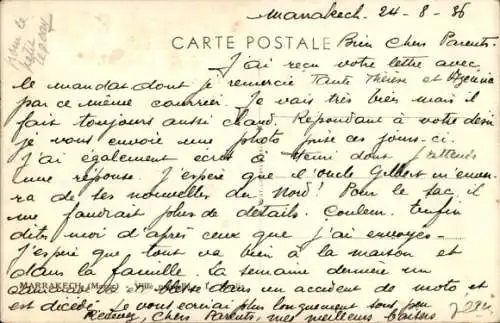 Marrakech. 24-8-36
CARTE POSTALE
Bien Chers Parents.
J'ai reçu votre lettre avec
le mandat dont je remercie Tante Thérèse et
par ce même courrier. Je vais très bien mais il
fait toujours aussi chaud. Repondant à votre desir
je vous envoie une photo prise ces jours-ci.
J'ai également ecrit à Henri dont j'attends
une réponse. J'espère que l'oncle Gilbert m'enver-
ra de ses nouvelles du Nord! Pour le sac, il
me faudrait plus de détails. Couleur. Enfin
dites moi d'après ceux que j'ai envoyés.
J'espère que tout va bien à la maison et
dans la famille. La semaine dernière un
MARRAKECH (Maroc)
dans un accident de moto et
est décédé. Je vous écrirai plus longuement sous peu
Recevez, Chers Parents, mes meilleurs baisers
pour le
petit